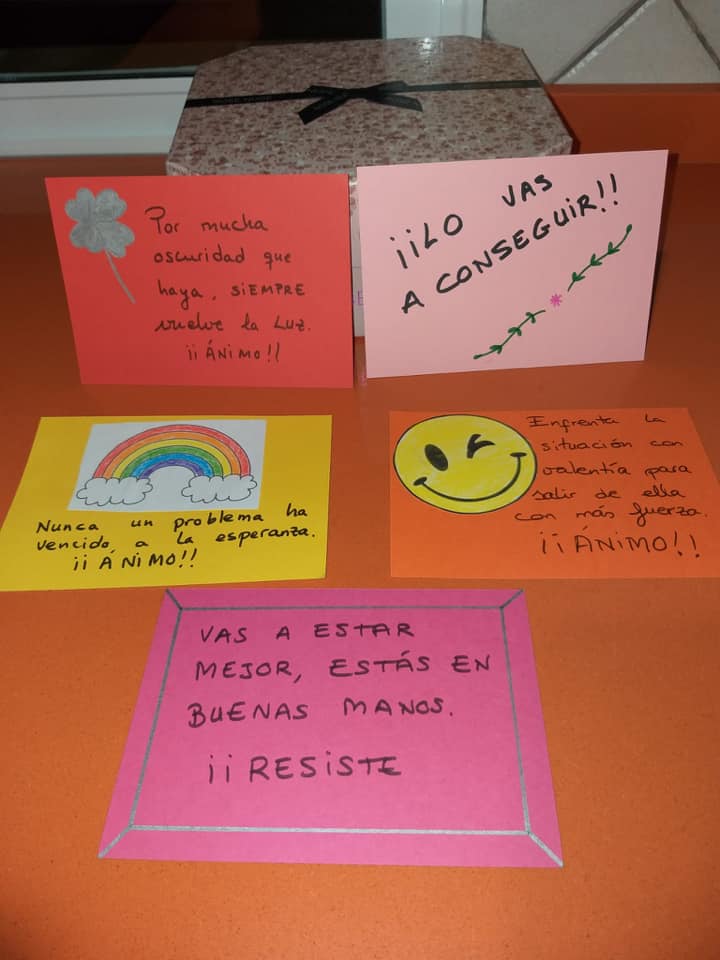 Por mucha
oscuridad que
haya, SIEMPRE
vuelve la LUZ.
¡¡ÁNIMO!!
¡¡LO VAS
A CONSEGUIR!!
Nunca un problema ha
vencido a la esperanza.
¡¡ÁNIMO!!
Enfrenta la
situación con
valentía para
salir de ella
con más fuerza.
¡¡ÁNIMO!!
VAS A ESTAR
MEJOR, ESTÁS EN
BUENAS MANOS.
¡¡RESISTE